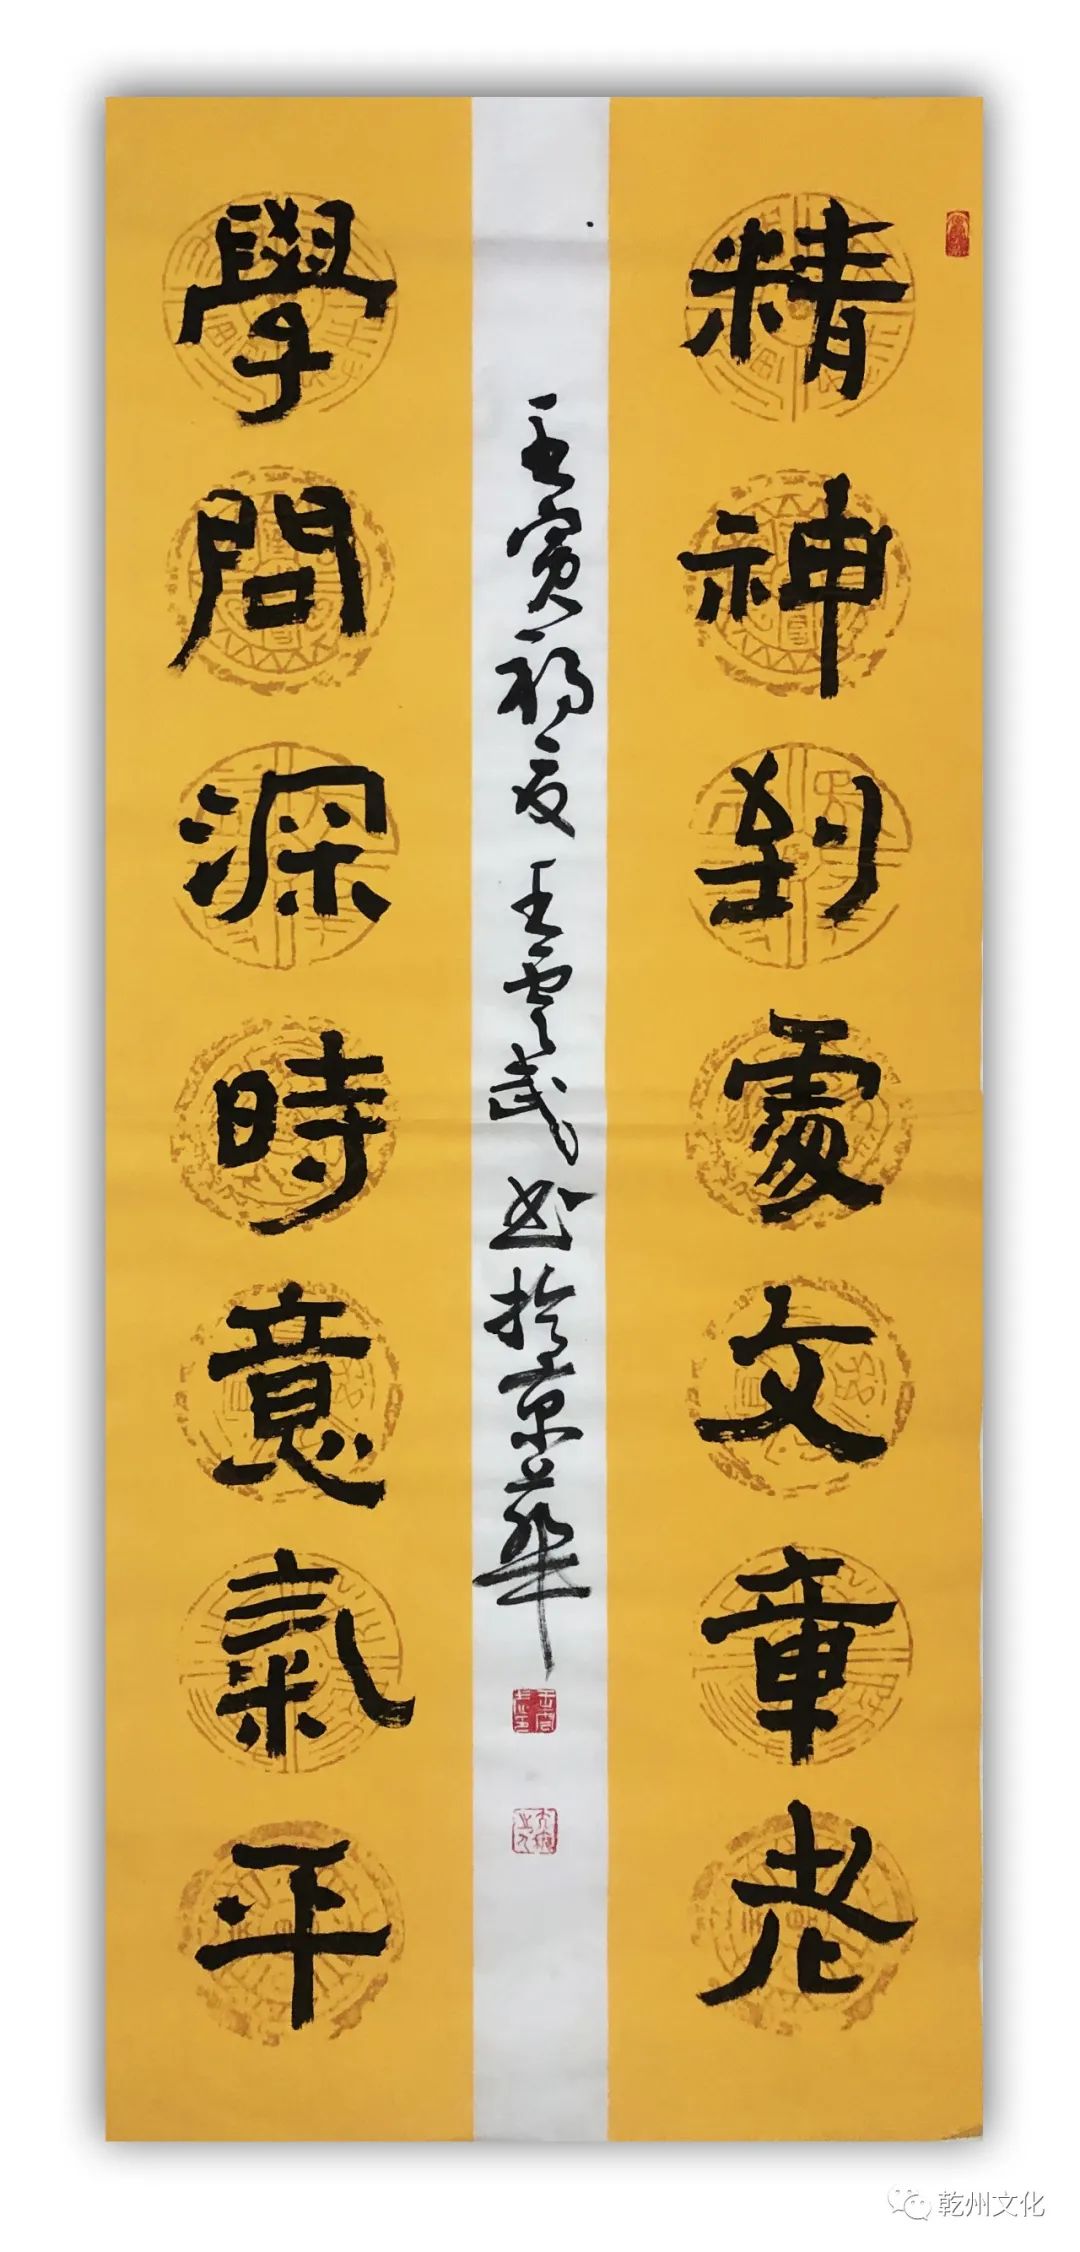 精神到處文章老
學問深時意氣平
壬寅初夏王雲武书於京華
乾州文化